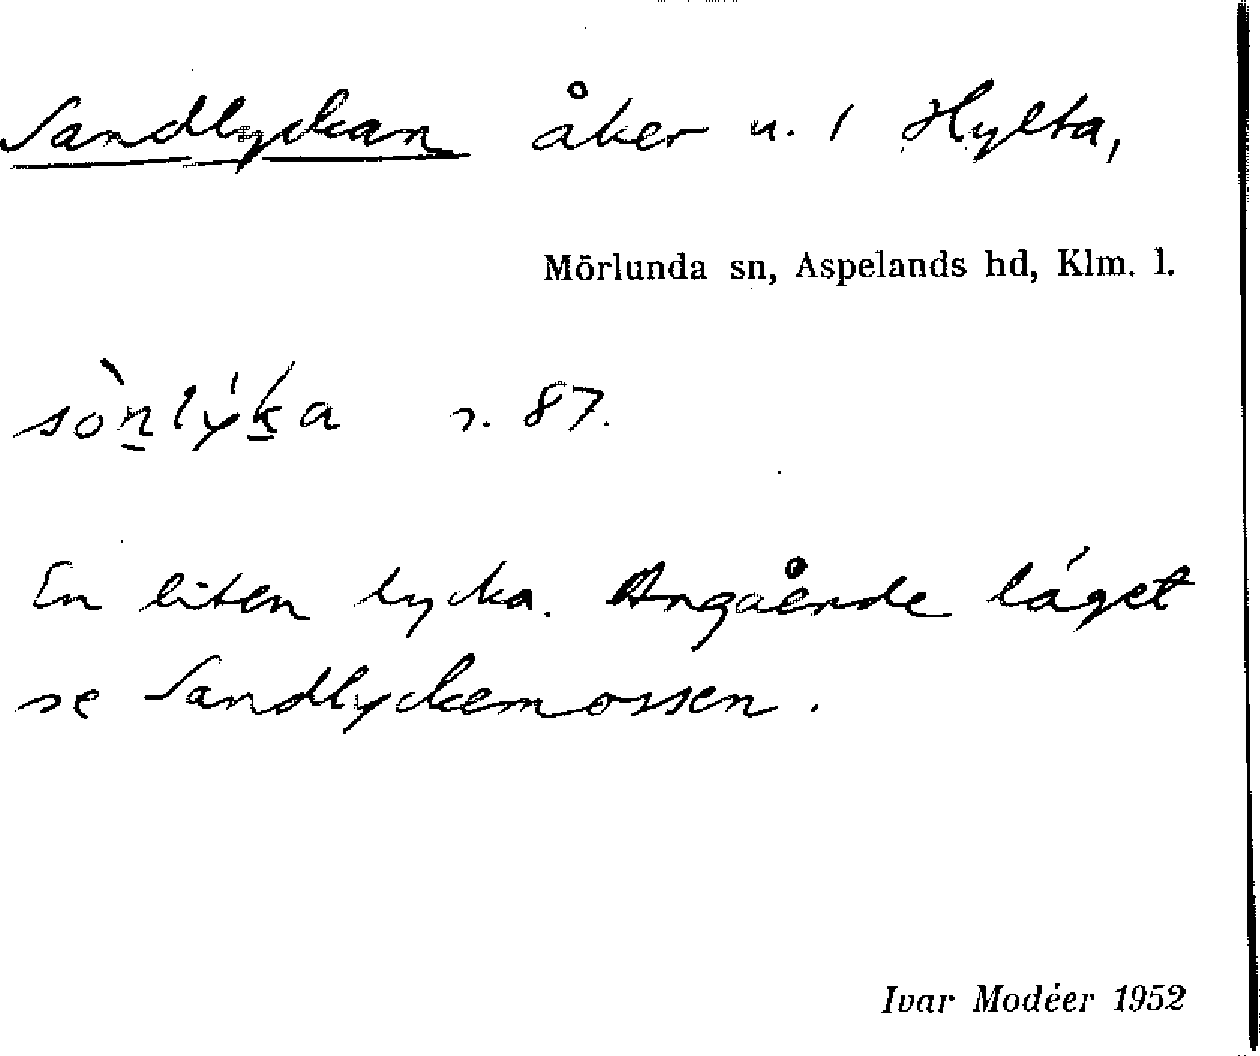 Sandlyckan åker u. 1 Hylta,
Mörlunda sn, Aspelands hd, Klm. l.
sòn̲lýk̲a r. 87.
En liten lycka. Angående läget
se Sandlyckemossen.
Ivar Modéer 1952